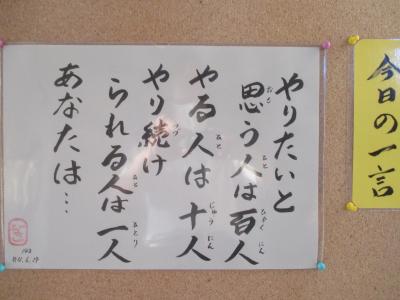 今日の一言
やりたいと
思う人は百人
やる人は十人
やり続け
られる人は一人
あなたは…